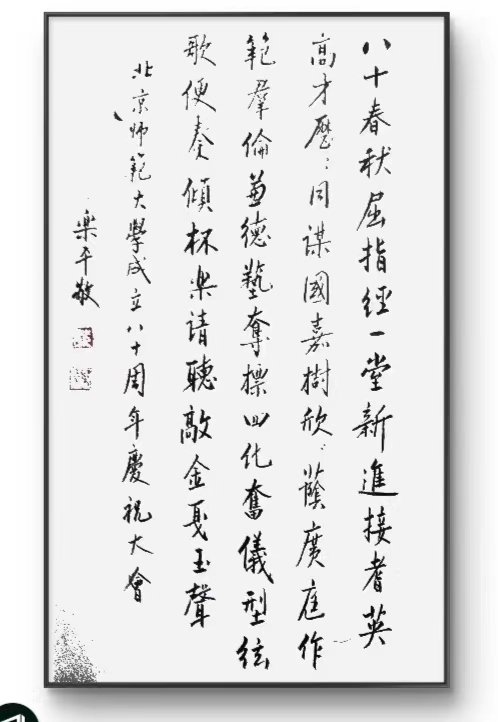 八十春秋屈指經一堂新進接耆英
高才歷:同謀國嘉樹欣:蔭廣庭作
範羣倫兼德藝奪標四化奮儀型絃
歌便奏傾杯樂請聽敲金戛玉聲
北京师範大學成立八十周年慶祝大會
樂平敬